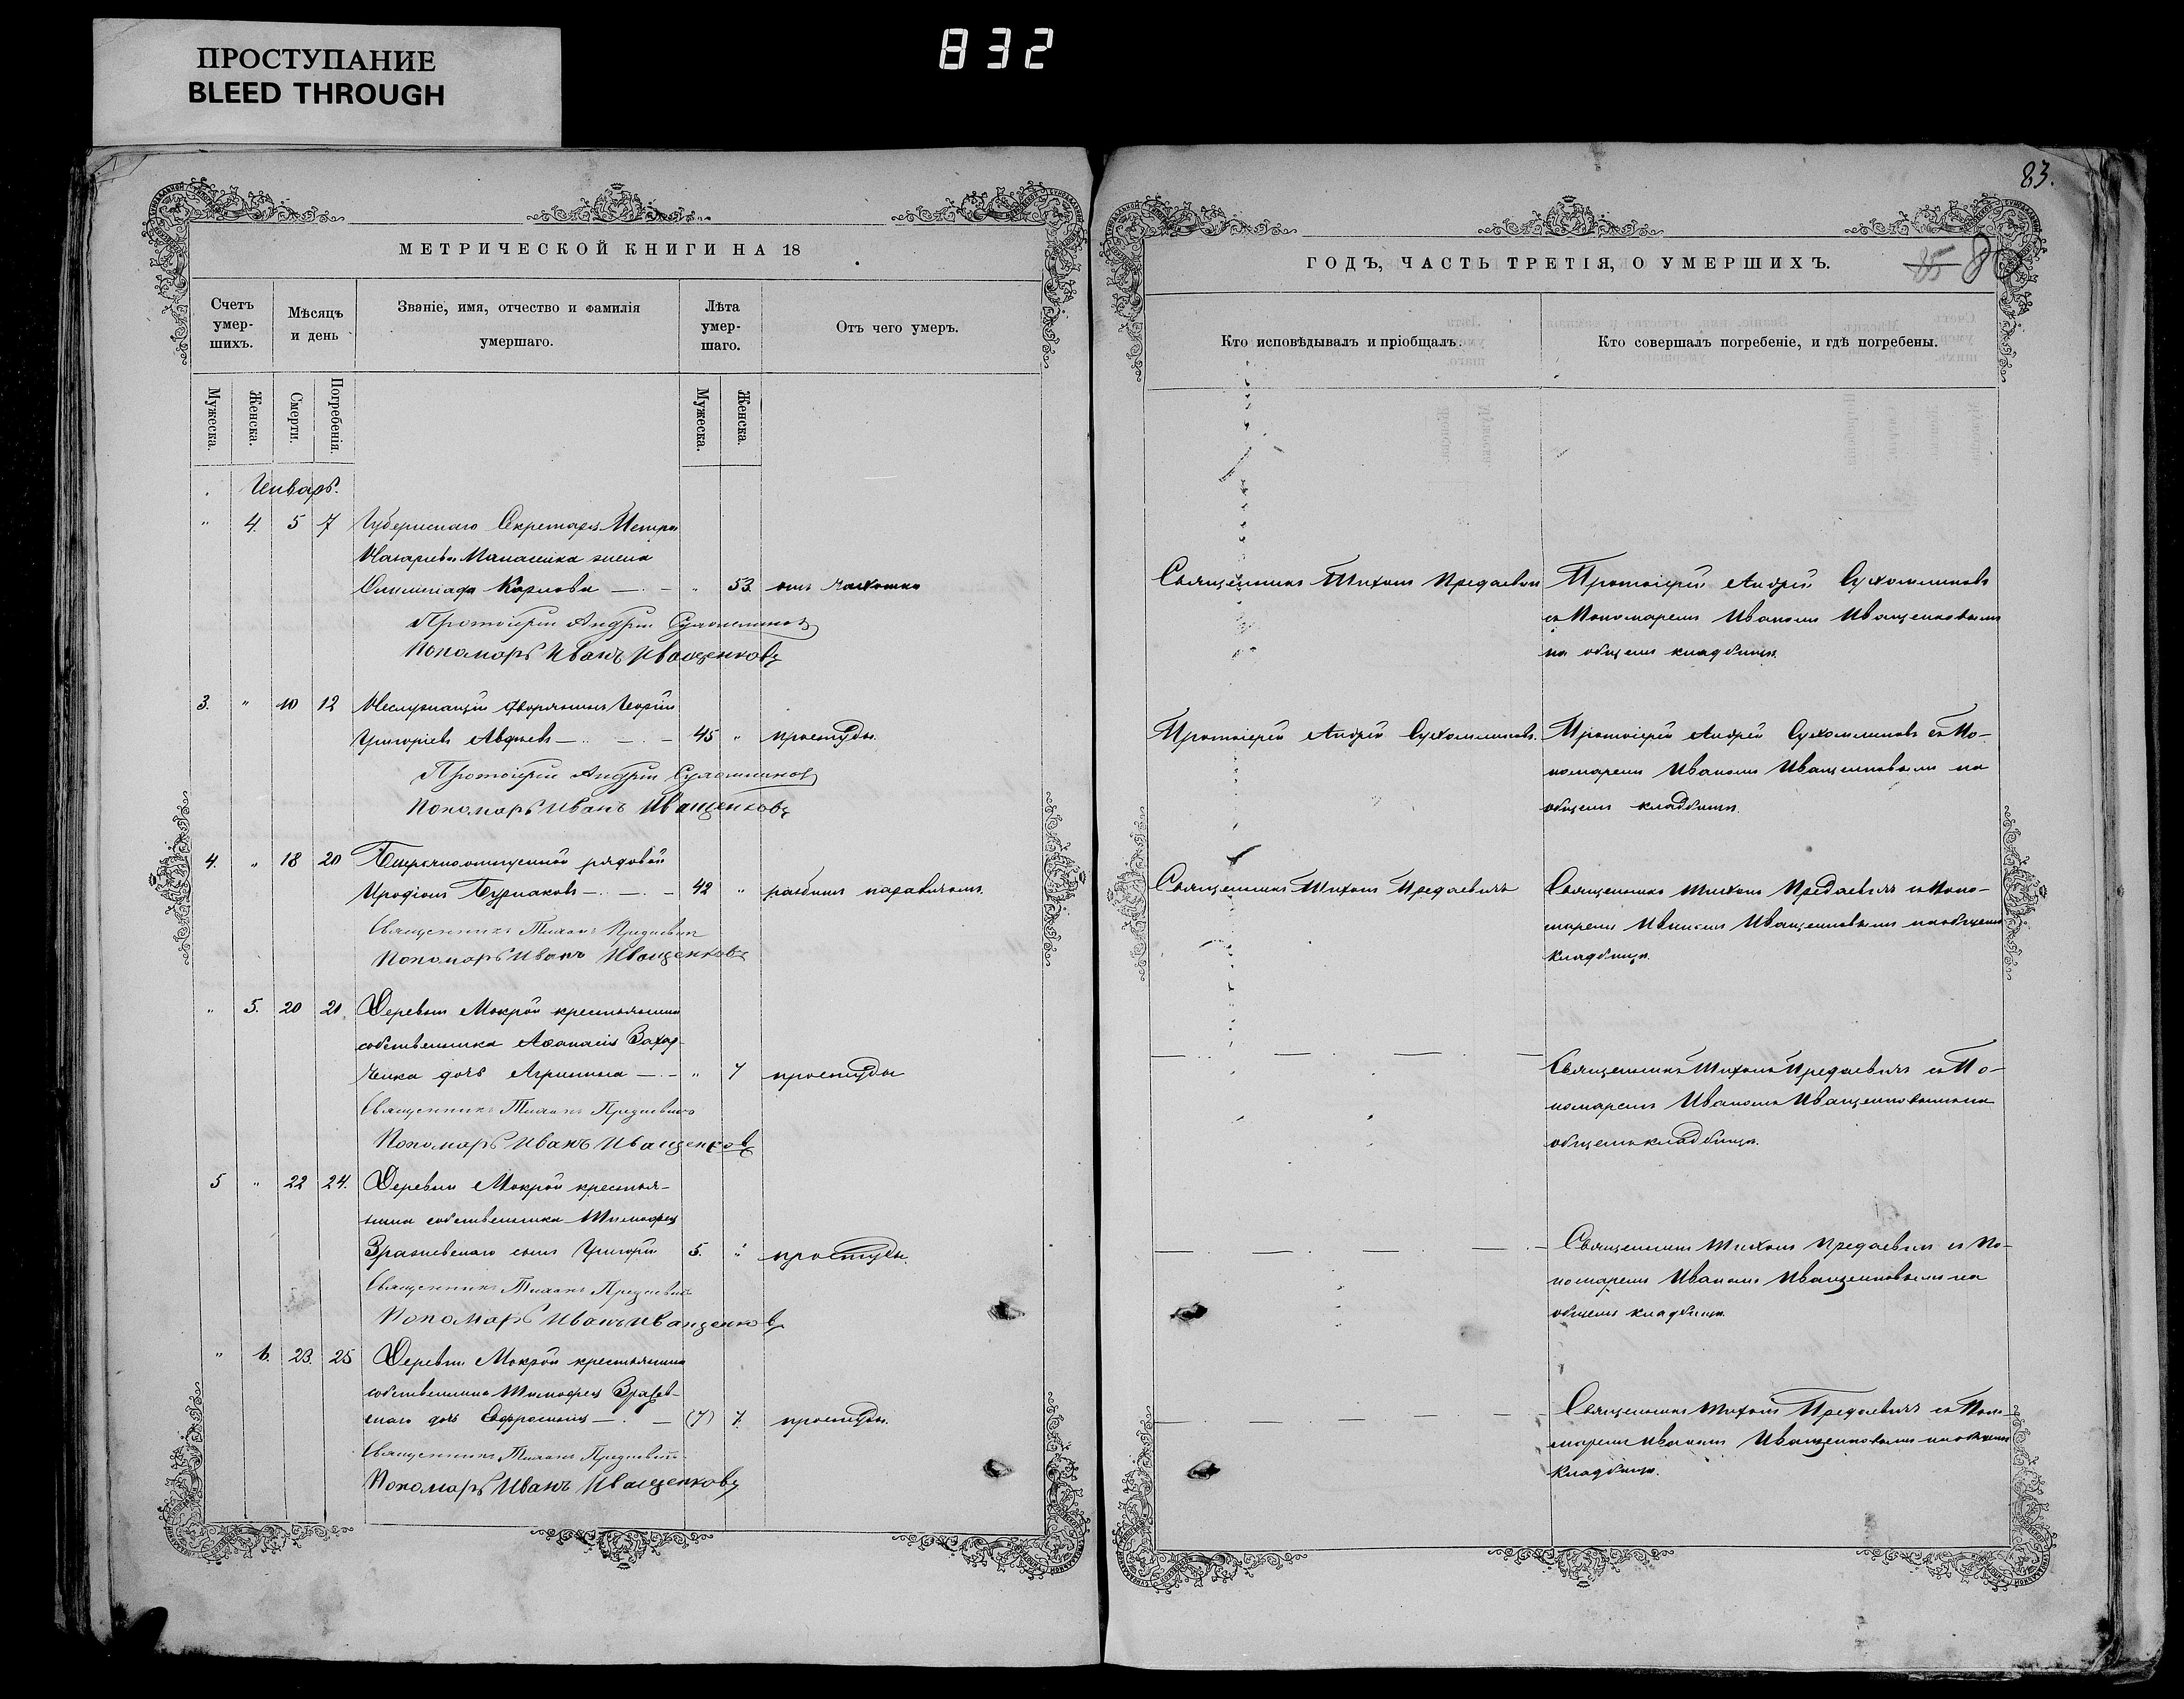 ПРОСТУПАНИЕ
BLEED THROUGH
832
83.
МЕТРИЧЕСКОЙ КНИГИ НА 18
Счетъ умер-шихъ.
Мѣсяцъ и день
Званіе, имя, отчество и фамилія умершаго.
Лѣта умер-шаго.
Отъ чего умеръ.
Мужеска.
Женска.
Смерти.
Погребенія.
Мужеска.
Женска.
Январь.
" 4. 5 7 Губернскаго Секретаря Петра
жена
Карпова " 53. отъ чахотки
Протоіерей Андрей Сухомлиновъ
Пономарь Иванъ Иващенковъ
3. " 10 12 Неслужащій дворянинъ Георгій
Григоріевъ Авдѣевъ 45 " простуды.
Протоіерей Андрей Сухомлиновъ
Пономарь Иванъ Иващенковъ
4. " 18 20 рядовой
Иродіонъ Бурлаковъ 42 " разбитъ параличомъ.
Священникъ Тихонъ
Пономарь Иванъ Иващенковъ
" 5. 20 21. Деревни Мокрой крестьянина
собственника Аѳанасія Захар-
ченка дочь Агрипина " 7 простуды
Священникъ Тихонъ
Пономарь Иванъ Иващенковъ
5 " 22 24. Деревни Мокрой крестья-
нина собственника Тимофея
сынъ Григорій 5. " простуды.
Священникъ Тихонъ
Пономарь Иванъ Иващенковъ
" 6. 23. 25 Деревни Мокрой крестьянина
собственника Тимофея
скаго дочь Евфросинія (7) 7. простуды.
Священникъ Тихонъ
Пономарь Иванъ Иващенковъ
85
ГОДЪ, ЧАСТЬ ТРЕТІЯ, О УМЕРШИХЪ.
Кто исповѣдывалъ и пріобщалъ.
Кто совершалъ погребеніе, и гдѣ погребены.
Священникъ Тихонъ
Протоіерей Андрей Сухомлиновъ
съ Пономаремъ Иваномъ Иващенковымъ
на общемъ кладбищѣ.
Протоіерей Андрей Сухомлиновъ.
Протоіерей Андрей Сухомлиновъ съ По-
номаремъ Иваномъ Иващенковымъ на
общемъ кладбищѣ.
Священникъ Тихонъ
Священникъ Тихонъ съ Поно-
маремъ Иваномъ Иващенковымъ на общемъ
кладбищѣ.
Священникъ Тихонъ съ По-
номаремъ Иваномъ Иващенковымъ на
общемъ кладбищѣ.
Священникъ Тихонъ съ По-
номаремъ Иваномъ Иващенковымъ на
общемъ кладбищѣ.
Священникъ Тихонъ съ Поно-
маремъ Иваномъ Иващенковымъ на общемъ
кладбищѣ.